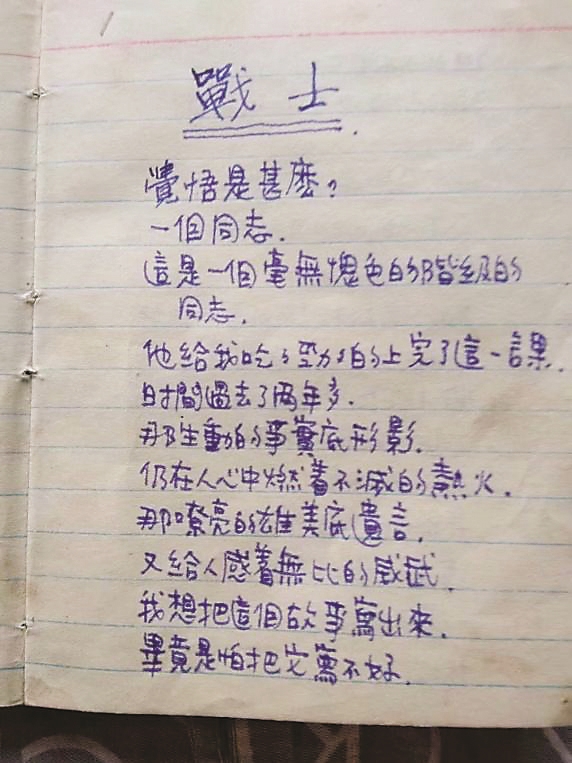 戰士.
覺悟是甚麽?
一個同志.
這是一個毫無愧色的階級的
同志.
他給我吃々勁々的上完了這一課.
时間過去了两年多.
那生動的事實底形影.
仍在人心中燃着不滅的熱火.
那嘹亮的雄美底遺言.
又給人感着無比的威武.
我想把這個故事寫出來.
畢竟是怕把它寫不好.